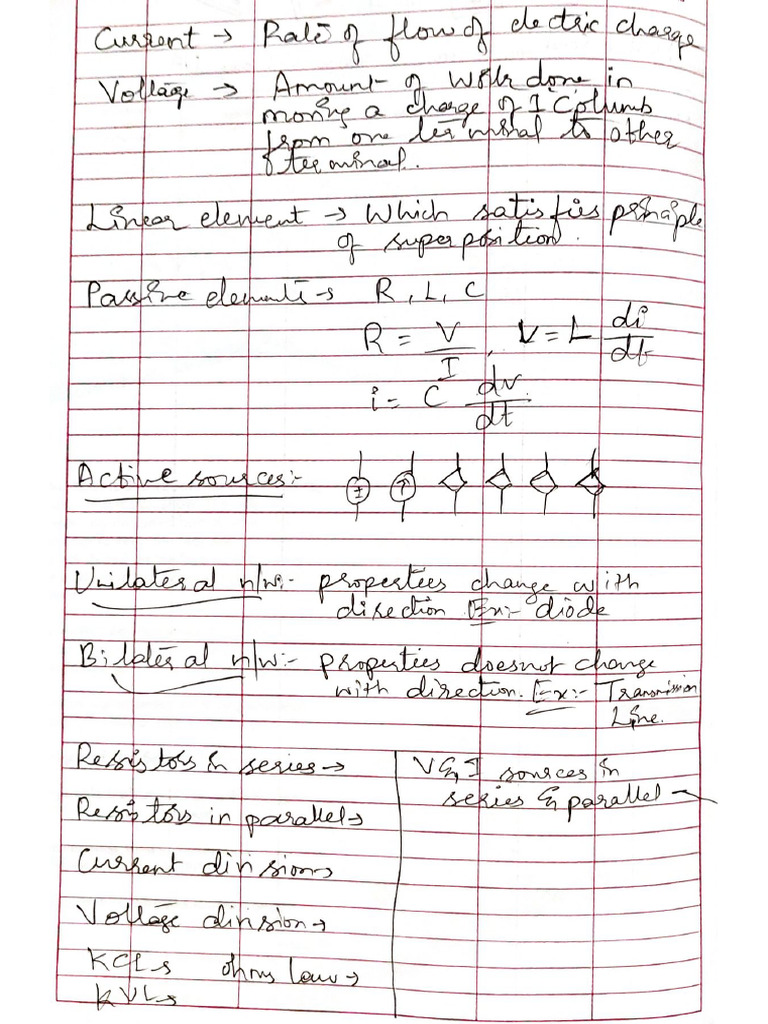 Current → Rate of flow of electric charge
Voltage → Amount of work done in
moving a charge of 1 Columb
from one terminal to other
terminal.
Linear element → Which satisfies principle
of superposition.
Passive elements → R, L, C
R = V/I, V = L di/dt
i = C dv/dt
Active sources:-
Unilateral n/w:- properties change with
direction Ex:- diode
Bilateral n/w:- properties doesnot change
with direction. Ex:- Transmission
Line.
Resistors in series →
Resistors in parallel →
Current division →
Voltage division →
KCL → ohms law →
KVL →
V & I sources in
series & parallel →